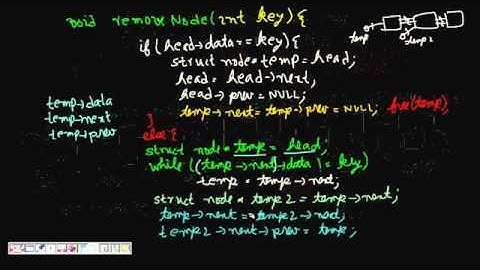 void removeNode(int key){
if(head→data == key){
struct node * temp = head;
head = head→next,
head→prev = NULL;
temp→next = temp→prev = NULL; free(temp),
}
else {
struct node * temp = head;
while((temp→next)→data != key)
temp = temp→next;
struct node * temp2 = temp→next;
temp→next = temp2→next;
temp2→next→prev = temp;
temp→data
temp→next
temp→prev
temp
temp2